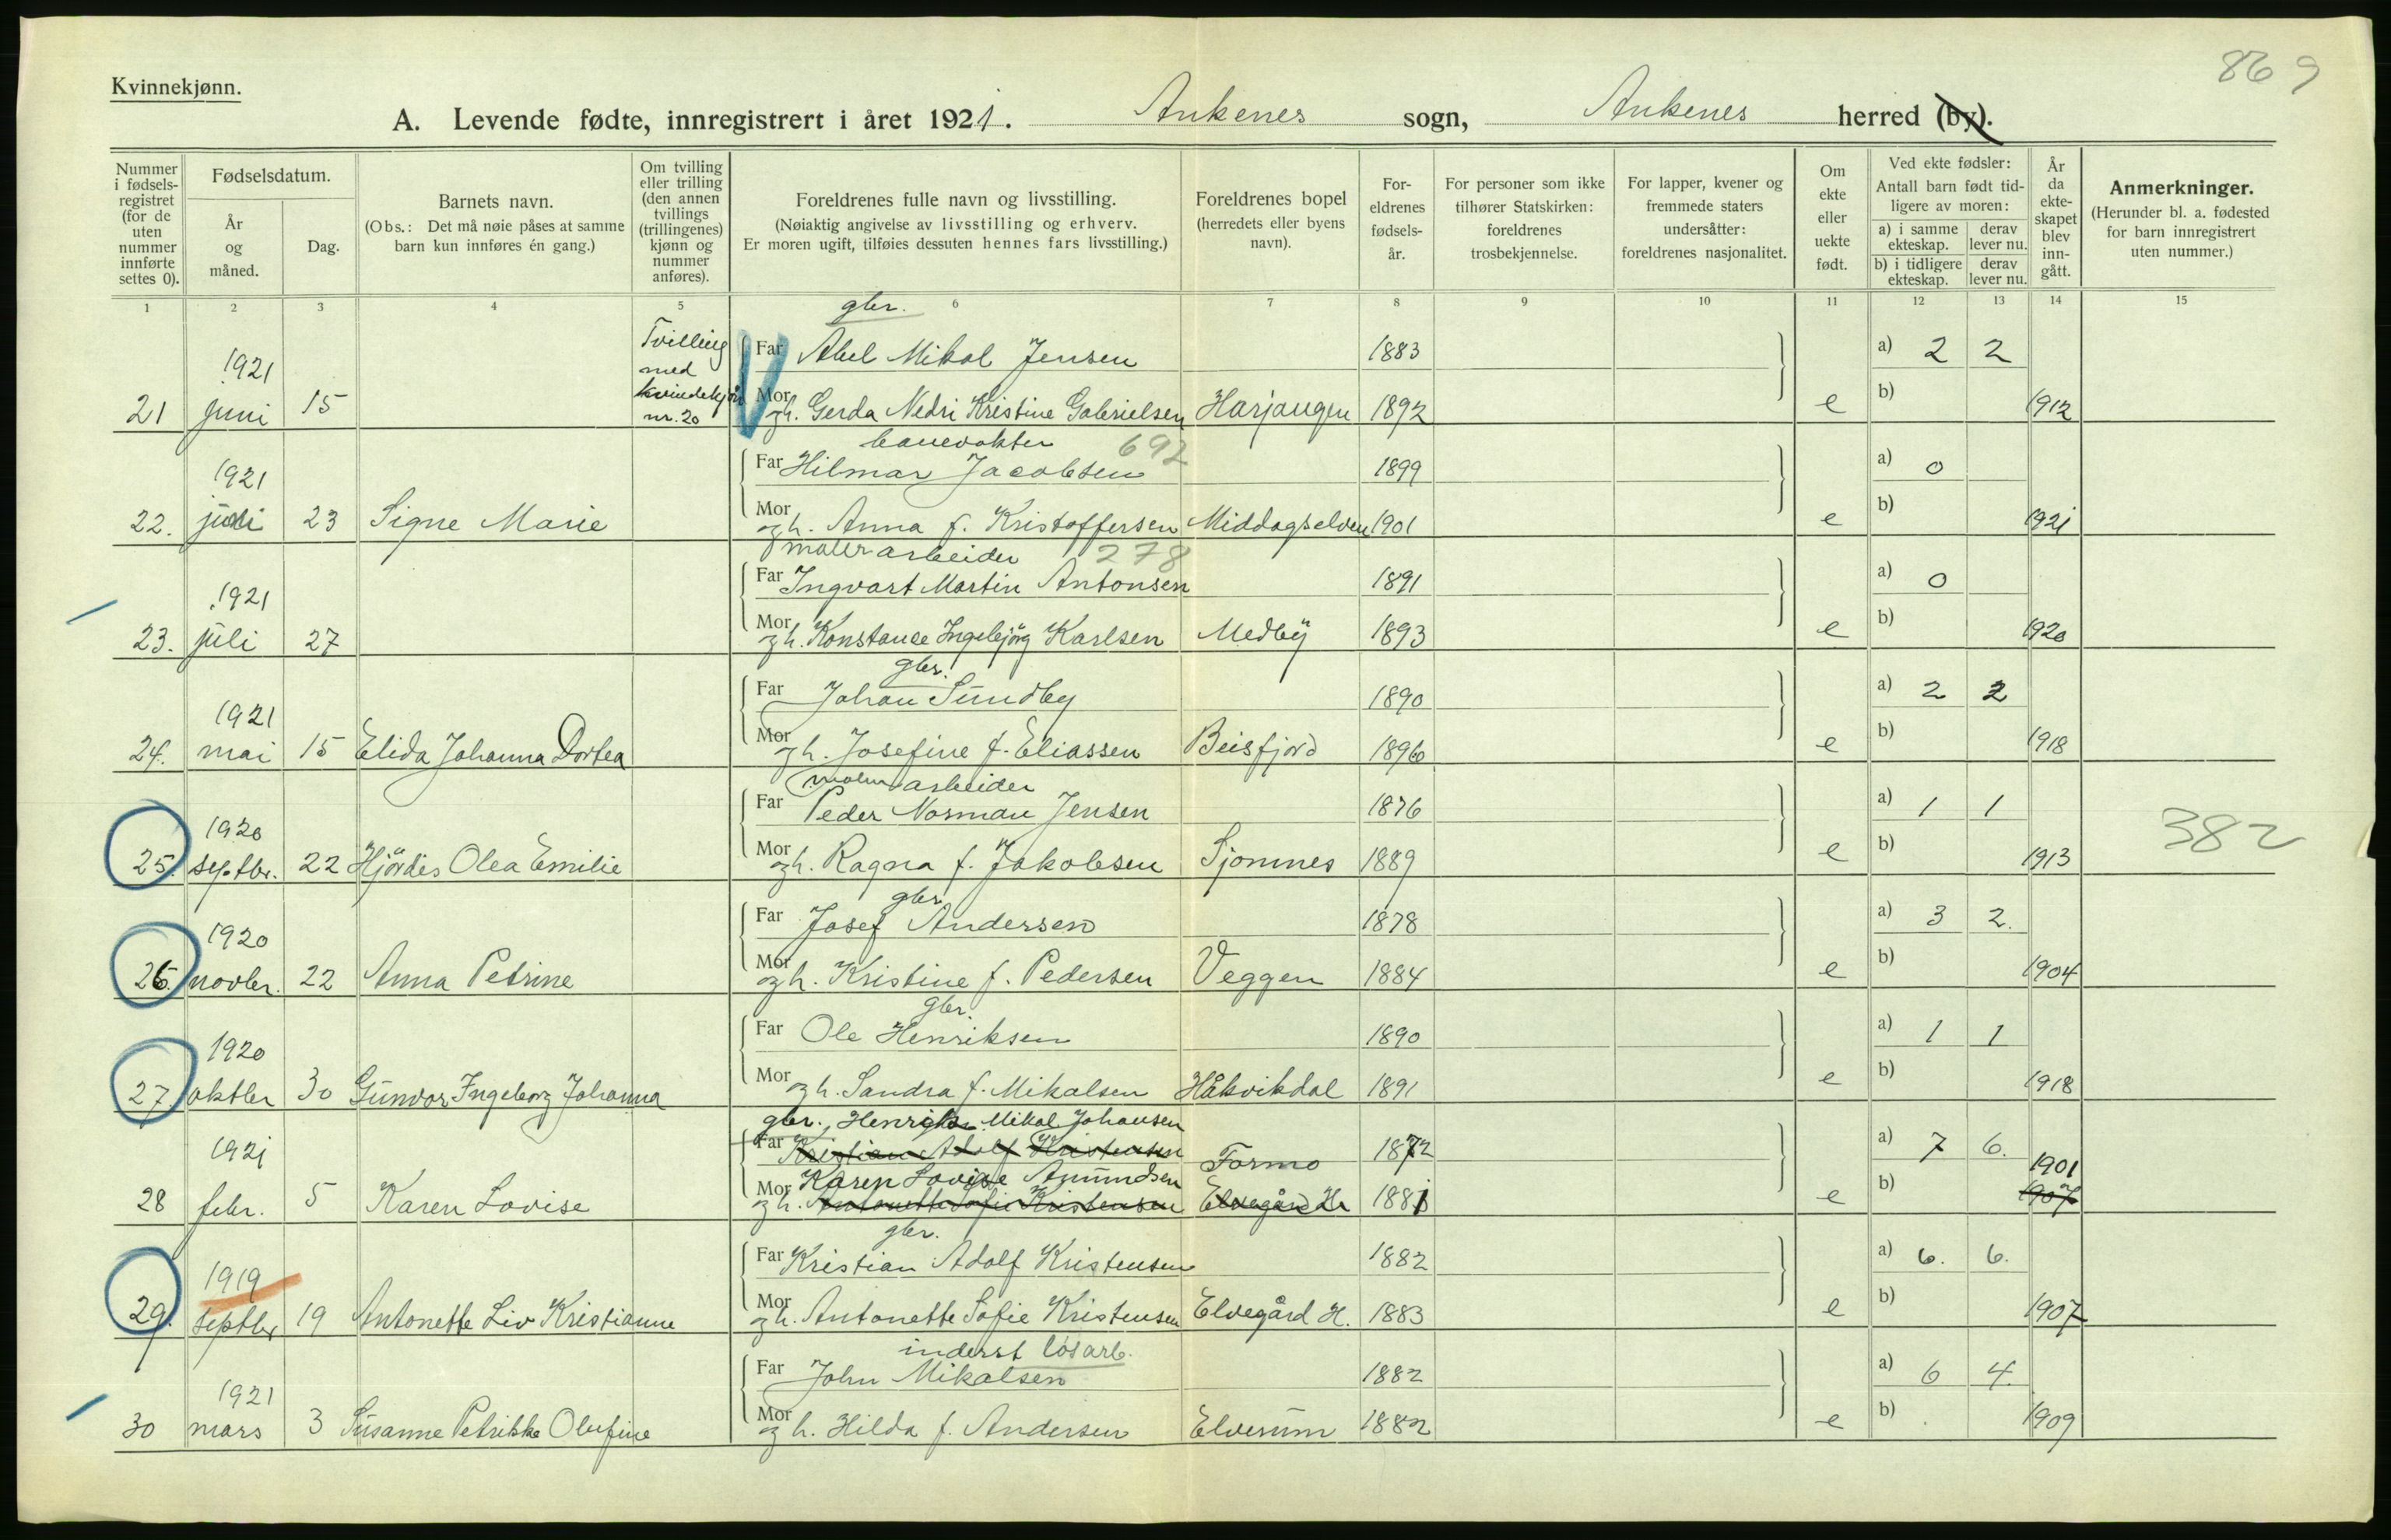 869
Kvinnekjønn.
A. Levende fødte, innregistrert i året 1921. Ankenes sogn, Ankenes herred (by).
Nummer i fødsels-registret (for de uten nummer innførte settes 0).
Fødselsdatum.
År og måned.
Dag.
Barnets navn.
(Obs.: Det må nøie påses at samme barn kun innføres én gang.)
Om tvilling eller trilling (den annen tvillings (trillingenes) kjønn og nummer anføres).
Foreldrenes fulle navn og livsstilling.
(Nøiaktig angivelse av livsstilling og erhverv.
Er moren ugift, tilføies dessuten hennes fars livsstilling.)
Foreldrenes bopel (herredets eller byens navn).
For-eldrenes fødsels-år.
For personer som ikke tilhører Statskirken: foreldrenes trosbekjennelse.
For lapper, kvener og fremmede staters undersåtter: foreldrenes nasjonalitet.
Om ekte eller uekte født.
Ved ekte fødsler:
Antall barn født tid-ligere av moren:
a) i samme ekteskap. derav lever nu.
b) i tidligere ekteskap. derav lever nu.
År da ekte-skapet blev inn-gått.
Anmerkninger.
(Herunder bl. a. fødested for barn innregistrert uten nummer.)
1 2 3 4 5 6 7 8 9 10 11 12 13 14 15
gbr.
1921 Tvilling med kvindekjøn nr. 20 Far Abel Mikal Jensen 1883 a) 2 2
21 juni 15 Mor gh. Gerda Nedri Kristine Gabrielsen Harjangen 1892 e b) 1912
banevokter 692
1921 Far Hilmar Jacobsen 1899 a) 0
22. juli 23 Signe Marie Mor gh. Anna f. Kristoffersen Middagselven 1901 e b) 1921
malerarbeider 278
1921 Far Ingvart Martin Antonsen 1891 a) 0
23. juli 27 Mor gh. Konstance Ingebjörg Karlsen Medby 1893 e b) 1920
gbr.
1921 Far Johan Sundby 1890 a) 2 2
24. mai 15 Elida Johanna Dortea Mor gh. Josefine f. Eliassen Beisfjord 1896 e b) 1918
malmarbeider
1920 Far Peder Norman Jensen 1876 a) 1 1 382
25. septbr. 22 Hjördis Olea Emilie Mor gh. Ragna f. Jakobsen Sjomnes 1889 e b) 1913
gbr
1920 Far Josef Andersen 1878 a) 3 2.
26. novbr. 22 Anna Petrine Mor gh. Kristine f. Pedersen Veggen 1884 e b) 1904
gbr.
1920 Far Ole Henriksen 1890 a) 1 1
27 oktbr 30 Gunvor Ingeborg Johanna Mor gh. Sandra f. Mikalsen Håkvikdal 1891 e b) 1918
gbr., Henrik Mikal Johansen
1921 Far Kristian Adolf Kristensen Formo 1872 a) 7 6. 1901
Karen Lovise Amundsen
28 febr. 5 Karen Lovise Mor gh. Antonette Sofie Kristensen Elvegård H 1881 e b) 1907
gbr.
1919 Far Kristian Adolf Kristensen 1882 a) 6. 6.
29. septbr 19 Antonette Liv Kristianne Mor gh. Antonette Sofie Kristensen Elvegård H. 1883 e b) 1907
inderst løsarb.
1921 Far John Mikalsen 1882 a) 6 4.
30 mars 3 Susanne Petrikke Olufine Mor gh. Hilda f. Andersen Elverum 1882 e b) 1909